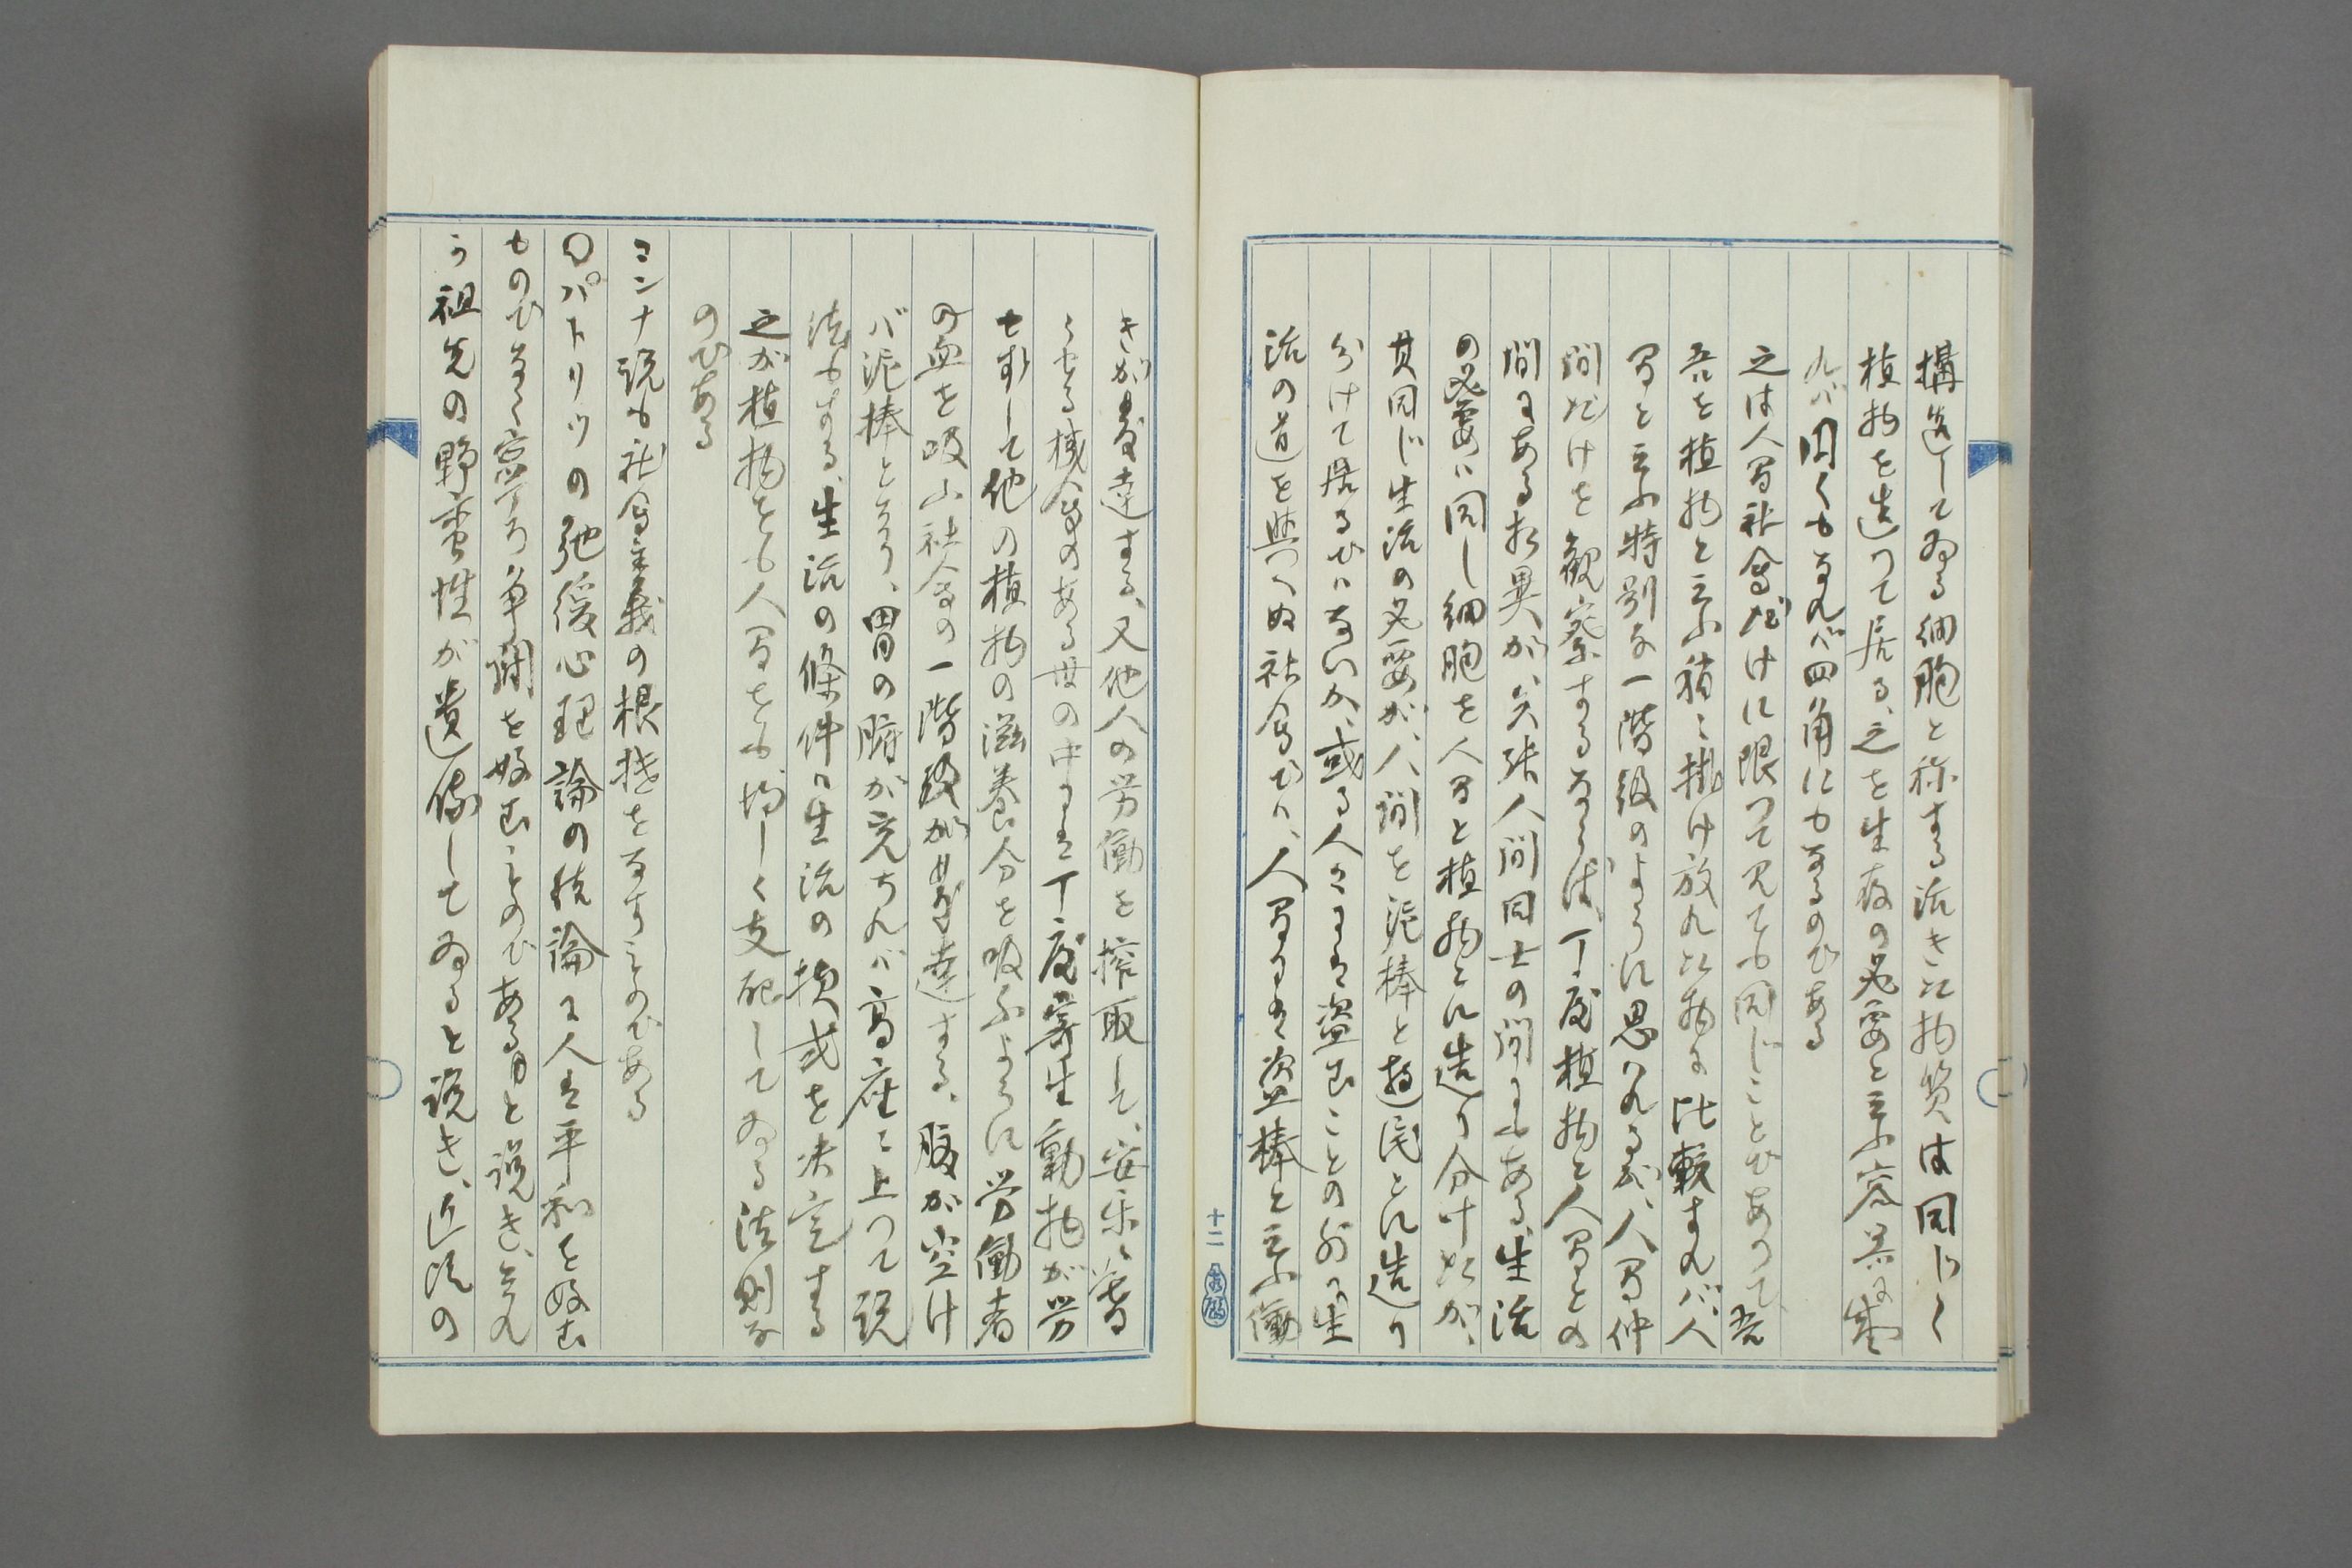 構造してゐる細胞と称する活きた物質は同じく
植物を造つて居る、之を生存の必要と云ふ容器に盛
れば円くもなれば四角にもなるのである
之は人間社会だけに限つて見ても同じことであつて、吾
吾を植物と云ふ稍々掛け放れた物に比較すれば、人
間と云ふ特別な一階級のように思はれるが、人間仲
間だけを観察するならば、丁度植物と人間との
間にある相異が、矢張人間同士の間にもある、生活
の必要は同じ細胞を人間と植物とに造り分けたが、
其同じ生活の必要が、人間を泥棒と遊民とに造り
分けて居るではないか、或る人々には盗むことの外に生
活の道を与へぬ社会では、人間には盗棒と云ふ働
十二
きが発達する、又他人の労働を搾取して、安楽に暮
らせる機会のある世の中には丁度寄生動物が労
せずして他の植物の滋養分を吸ふように労働者
の血を吸ふ社会の一階級が発達する、腹が空け
ば泥棒となり、胃の腑が充ちれば高座に上つて説
法もする、生活の條件は生活の様式を決定する
之が植物をも人間をも均しく支配してゐる法則な
のである
コンナ説も社会主義の根拠をなすことのである
○パトリツの弛緩心理論の結論に人は平和を好む
ものでなく寧ろ争闘を好むものである」と説き、それ
う祖先の野蛮性が遺伝してゐると説き、近頃の